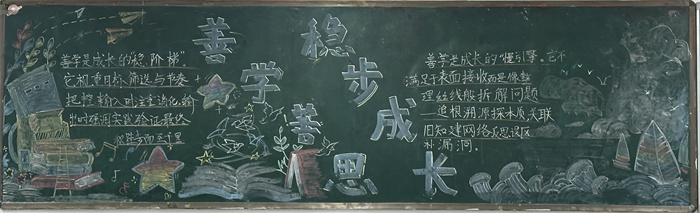 善学善思
稳步成长
善学是成长的“稳阶梯”。
它和重目标筛选与节奏
把控,输入时注重消化,输
出时强调实践验证,最终
善学是成长的“慢引擎”。它不
满足于表面接收而是像整
理丝线般拆解问题
追根溯源探本质,关联
旧知建网络,反思误区
补漏洞。